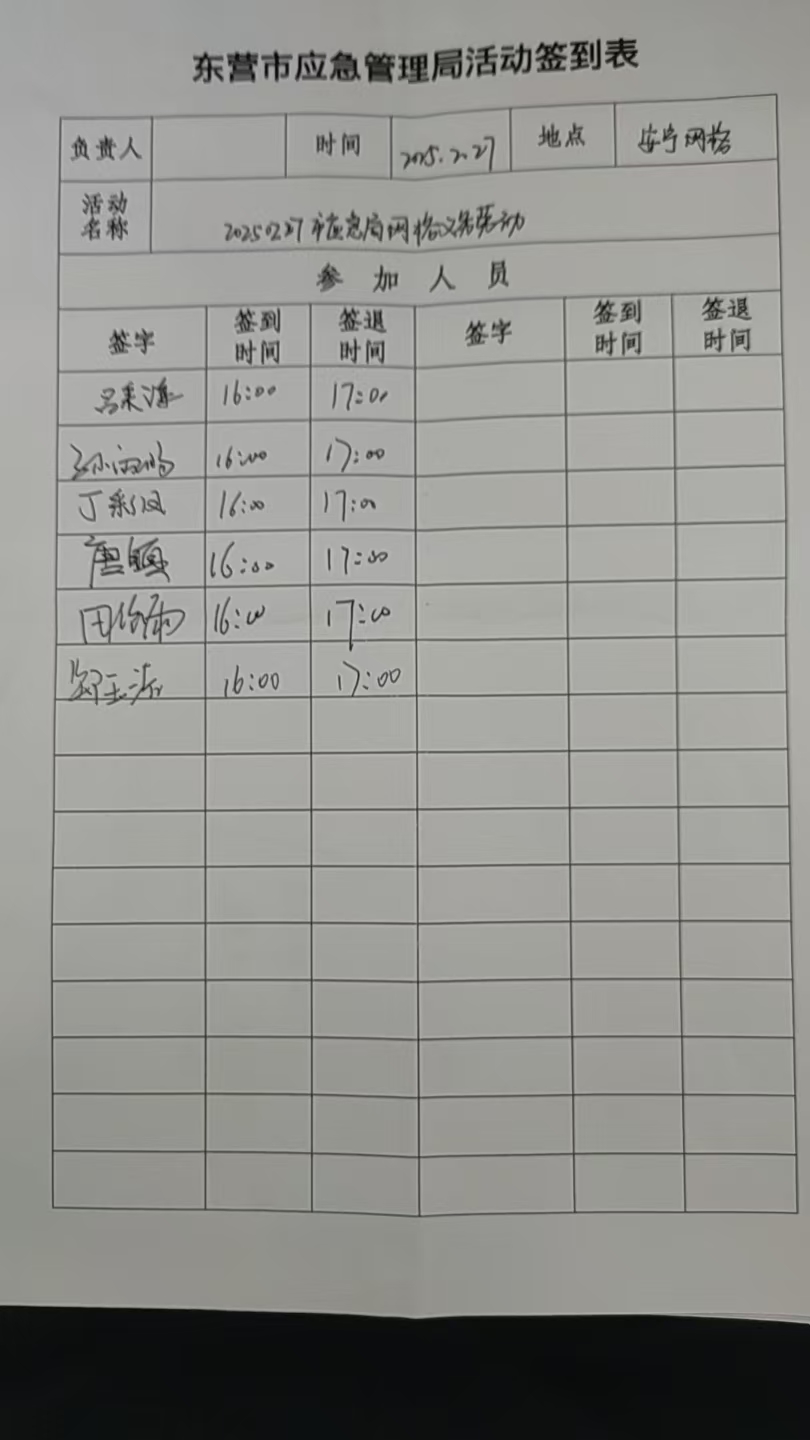 东营市应急管理局活动签到表
负责人 时间 2025.2.27 地点 安宁网格
活动名称 20250227市应急局网格义务劳动
参加人员
签字 签到时间 签退时间 签字 签到时间 签退时间
吕采海 16:00 17:00
16:00 17:00
丁彩凤 16:00 17:00
唐 16:00 17:00
田 雨 16:00 17:00
16:00 17:00